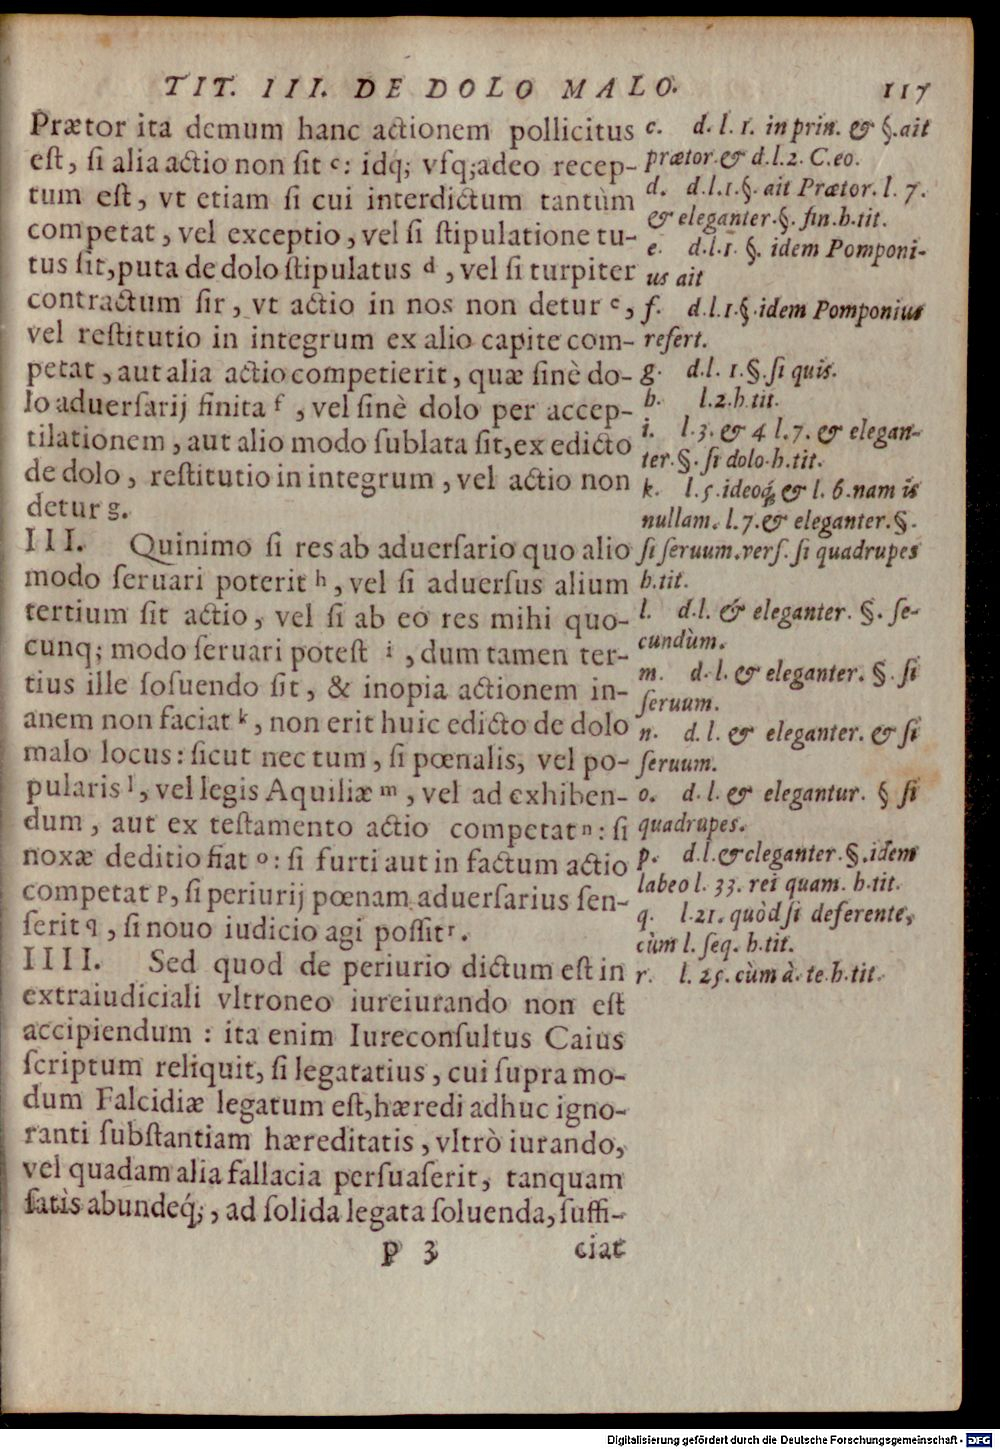 TIT. III. DE DOLO MALO. 117
Prætor ita demum hanc actionem pollicitus
eſt, ſi alia actio non ſit c: idq; vſq;adeo recep-
tum eſt, vt etiam ſi cui interdictum tantùm
competat, vel exceptio, vel ſi ſtipulatione tu-
tus ſit, puta de dolo ſtipulatus d, vel ſi turpiter
contractum ſir, vt actio in nos non detur e,
vel reſtitutio in integrum ex alio capite com-
petat, aut alia actio competierit, quæ ſinè do-
lo aduerſarij finita f, vel ſinè dolo per accep-
tilationem, aut alio modo ſublata ſit, ex edicto
de dolo, reſtitutio in integrum, vel actio non
detur g.
III. Quinimo ſi res ab aduerſario quo alio
modo ſeruari poterit h, vel ſi aduerſus alium
tertium ſit actio, vel ſi ab eo res mihi quo-
cunq; modo ſeruari poteſt i, dum tamen ter-
tius ille ſoſuendo ſit, & inopia actionem in-
anem non faciat k, non erit huic edicto de dolo
malo locus: ſicut nec tum, ſi pœnalis, vel po-
pularis l, vel legis Aquiliæ m, vel ad exhiben-
dum, aut ex teſtamento actio competat n: ſi
noxæ deditio fiat o: ſi furti aut in factum actio
competat p, ſi periurij pœnam aduerſarius ſen-
ſerit q, ſi nouo iudicio agi poſſit r.
IIII. Sed quod de periurio dictum eſt in
extraiudiciali vltroneo iureiurando non eſt
accipiendum : ita enim Iureconſultus Caius
ſcriptum reliquit, ſi legatatius, cui ſupra mo-
dum Falcidiæ legatum eſt, hæredi adhuc igno-
ranti ſubſtantiam hæreditatis, vltrò iurando,
vel quadam alia fallacia perſuaſerit, tanquam
ſatis abundeq́;, ad ſolida legata ſoluenda, ſuffi-
p 3 ciat
c. d. l. 1. in prin. & §. ait
prætor. & d. l. 2. C. eo.
d. d. l. 1. §. ait Prætor. l. 7.
& eleganter. §. fin. h. tit.
e. d. l. 1. §. idem Pomponi-
us ait
f. d. l. 1. §. idem Pomponius
refert.
g. d. l. 1. §. ſi quis.
h. l. 2. h. tit.
i. l. 3. & 4 l. 7. & elegan-
ter. §. ſi dolo. h. tit.
k. l. 5. ideoq́; & l. 6. nam is
nullam. l. 7. & eleganter. §.
ſi ſeruum. verſ. ſi quadrupes
h. tit.
l. d. l. & eleganter. §. ſe-
cundùm.
m. d. l. & eleganter. §. ſi
ſeruum.
n. d. l. & eleganter. & ſi
ſeruum.
o. d. l. & elegantur. § ſi
quadrupes.
p. d. l. & eleganter. §. idem
labeo l. 33. rei quam. h. tit.
q. l. 21. quòd ſi deferente,
cùm l. ſeq. h. tit.
r. l. 25. cùm à te. h. tit.
Digitalisierung gefördert durch die Deutsche Forschungsgemeinschaft - DFG